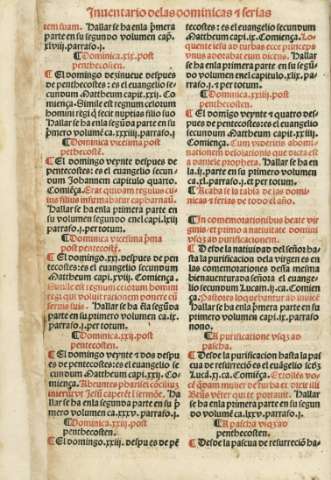 Inventario delas dominicas ⁊ ferias
tem suam. Hallar se ha enla p̃mera
parte en su segundo volumen cap̃.
xlviij. parrafo.j.
¶ Dominica .xix. post
penthecosten.
¶ El domingo dezinueue despues
de penthecostes: es el euangelio se
cundum Mattheum capi. xxij. Co
miença. Simile est regnum celorum
homini regi q̃ fecit nuptias filio suo
Hallar se ha enla segũda parte en su
primero volumẽ ca. xxxiij. parrafo.j.
¶ Dominica vicesima post
pethecostẽ.
¶ El domingo veynte despues de
penthecostes: es el euangelio secun
dum Johannem capitulo quarto.
Comiẽça. Erat quidam regulus cu
ius filius infirmabatur capharnaũ.
Hallar se ha enla primera parte en
su volumen segundo enel capi. lxij
parrafo.j. per totum.
¶ Dominica vicesima p̃ma
post pentecostẽ.
¶ El domingo .xxj. despues de pen
tecostes: es el euangelio secundum
Mattheum capi. xviij. Comiença.
Simile est regnum celorum homini
regi qui voluit rationem ponere cũ
seruis suis. Hallar se ha ẽla segũda
parte en su primero volumen ca. ix.
parrafo.j. per totum.
¶ Dominica .xxij. post
pentecosten.
¶ El domingo veynte ⁊ dos despu
es de pentecostes: es el euangelio se
cundum Mattheum capi. xxij. Co
miença. Abeuntes pharisei cõciliuz
inierunt vt Jesũ caperẽt ĩ sermõe. Ha
llar se ha enla segunda parte en su p̃
mero volumen ca. xxv. parrafo.j.
¶ Dominica .xxiij. post
penthecosten.
¶ El domingo .xxiij. despues de pẽ
tecostes: es el euangelio secundum
Mattheum capi. ix. Comiença. Lo
quente iesu ad turbas ecce princeps
vnus adorabat eum dicens. Hallar
se ha enla primera parte en su segũ
do volumen enel capitulo .xlix. par
rafo.j. per totum.
¶ Dominica .xxiiij. post
penthecosten.
¶ El domĩgo veynte ⁊ quatro des
pues de pẽtecostes: es el euangelio
secundum Mattheum capit. xxiiij.
Comiença. Cum videritis abomi
nationem desolationis que dicta est
a daniele propheta. Hallar se ha en
la .ij. parte en su primero volumen
ca. xl. parrafo.j. per totum.
¶ Acaba se la tabla de las domi
nicas ⁊ ferias de todo el año.
¶ In commemorationibus beate vir
ginis: et primo a natiuitate domini
vsq̃ ad purificationem.
¶ Desde la natiuidad del señor has
ta la purificacion dela virgen es en
las comemoraciones desta mesma
bienauenturada señora el euangelio
secundum Lucam .ij. ca. Comien
ça. Pastores loquebantur ad inuicẽ
Hallar se ha enla primera parte en
su primero volumen capi. ix. parrafo
nono.
¶ A purificatione vsq̃ ad
pascha.
¶ Desde la purificacion hasta la pas
cua de resurreciõ es el euãgelio scd̃z
Lucã .xj. ca. Comiença. Extollẽs vo
cẽ quedam mulier de turba et dixit illi
Beat̃ vẽter qui te portauit. Hallar
se ha enla segunda parte en su segun
do volumẽ ca. lxxv. parrafo.j.
¶ A pascha vsq̃ ad
penthecosten.
¶ Desde la pascua de resurreciõ ha-